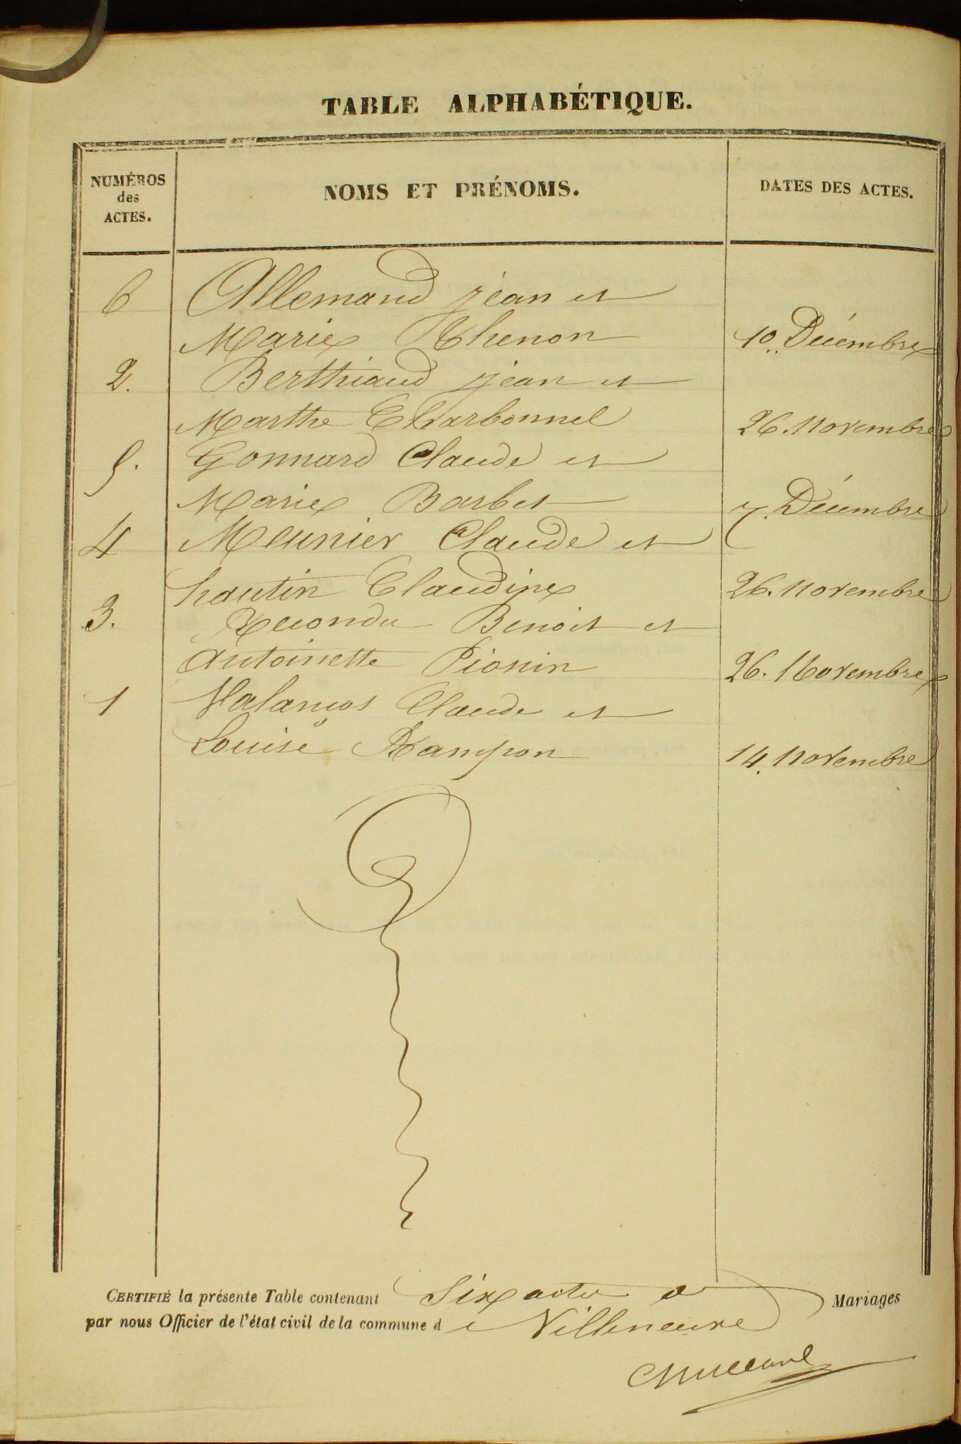 TABLE ALPHABÉTIQUE.
NUMÉROS
des
ACTES.
NOMS ET PRÉNOMS.
DATES DES ACTES.
6 Allemand jean et
Marie Thenon 10. Décembre
2. Berthiaud jean et
Marthe Charbonnel 26. Novembre
5. Gonnard Claude et
Marie Barbet 7. Décembre
4 Meunier Claude et
hautin Claudine 26. Novembre
3. Benoit et
Antoinette Pionin 26. Novembre
1 Claude et
Louise Rampon 14. Novembre
CERTIFIÉ la présente Table contenant Six actes de Mariages
par nous Officier de l'état civil de la commune de Villeneuve